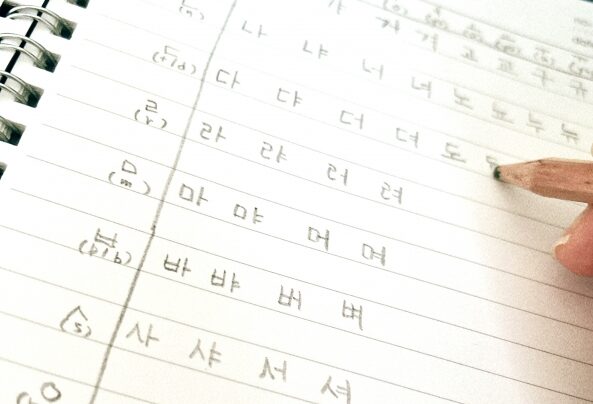 거 겨 고 교 구 규
ㄴ (n) 나 냐 너 녀 노 뇨 누 뉴
ㄷ (d/t) 다 댜 더 뎌 도
ㄹ (r) 라 랴 러 려
ㅁ (m) 마 먀 머 며
ㅂ (b/p) 바 뱌 버 벼
ㅅ (s) 사 샤 서 셔
ㅇ